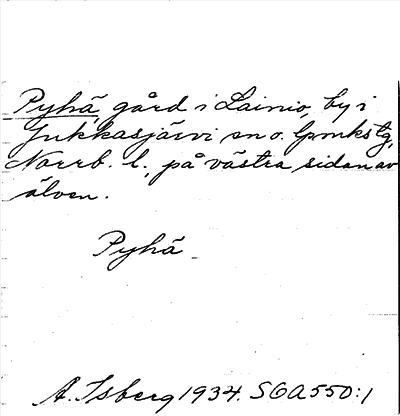 Pyhä, gård i Lainio, by i
Jukkasjärvi sn o. lpmkstg,
Norrb. l., på västra sidan av
älven.
Pyhä
A. Isberg 1934. SOA 550:1